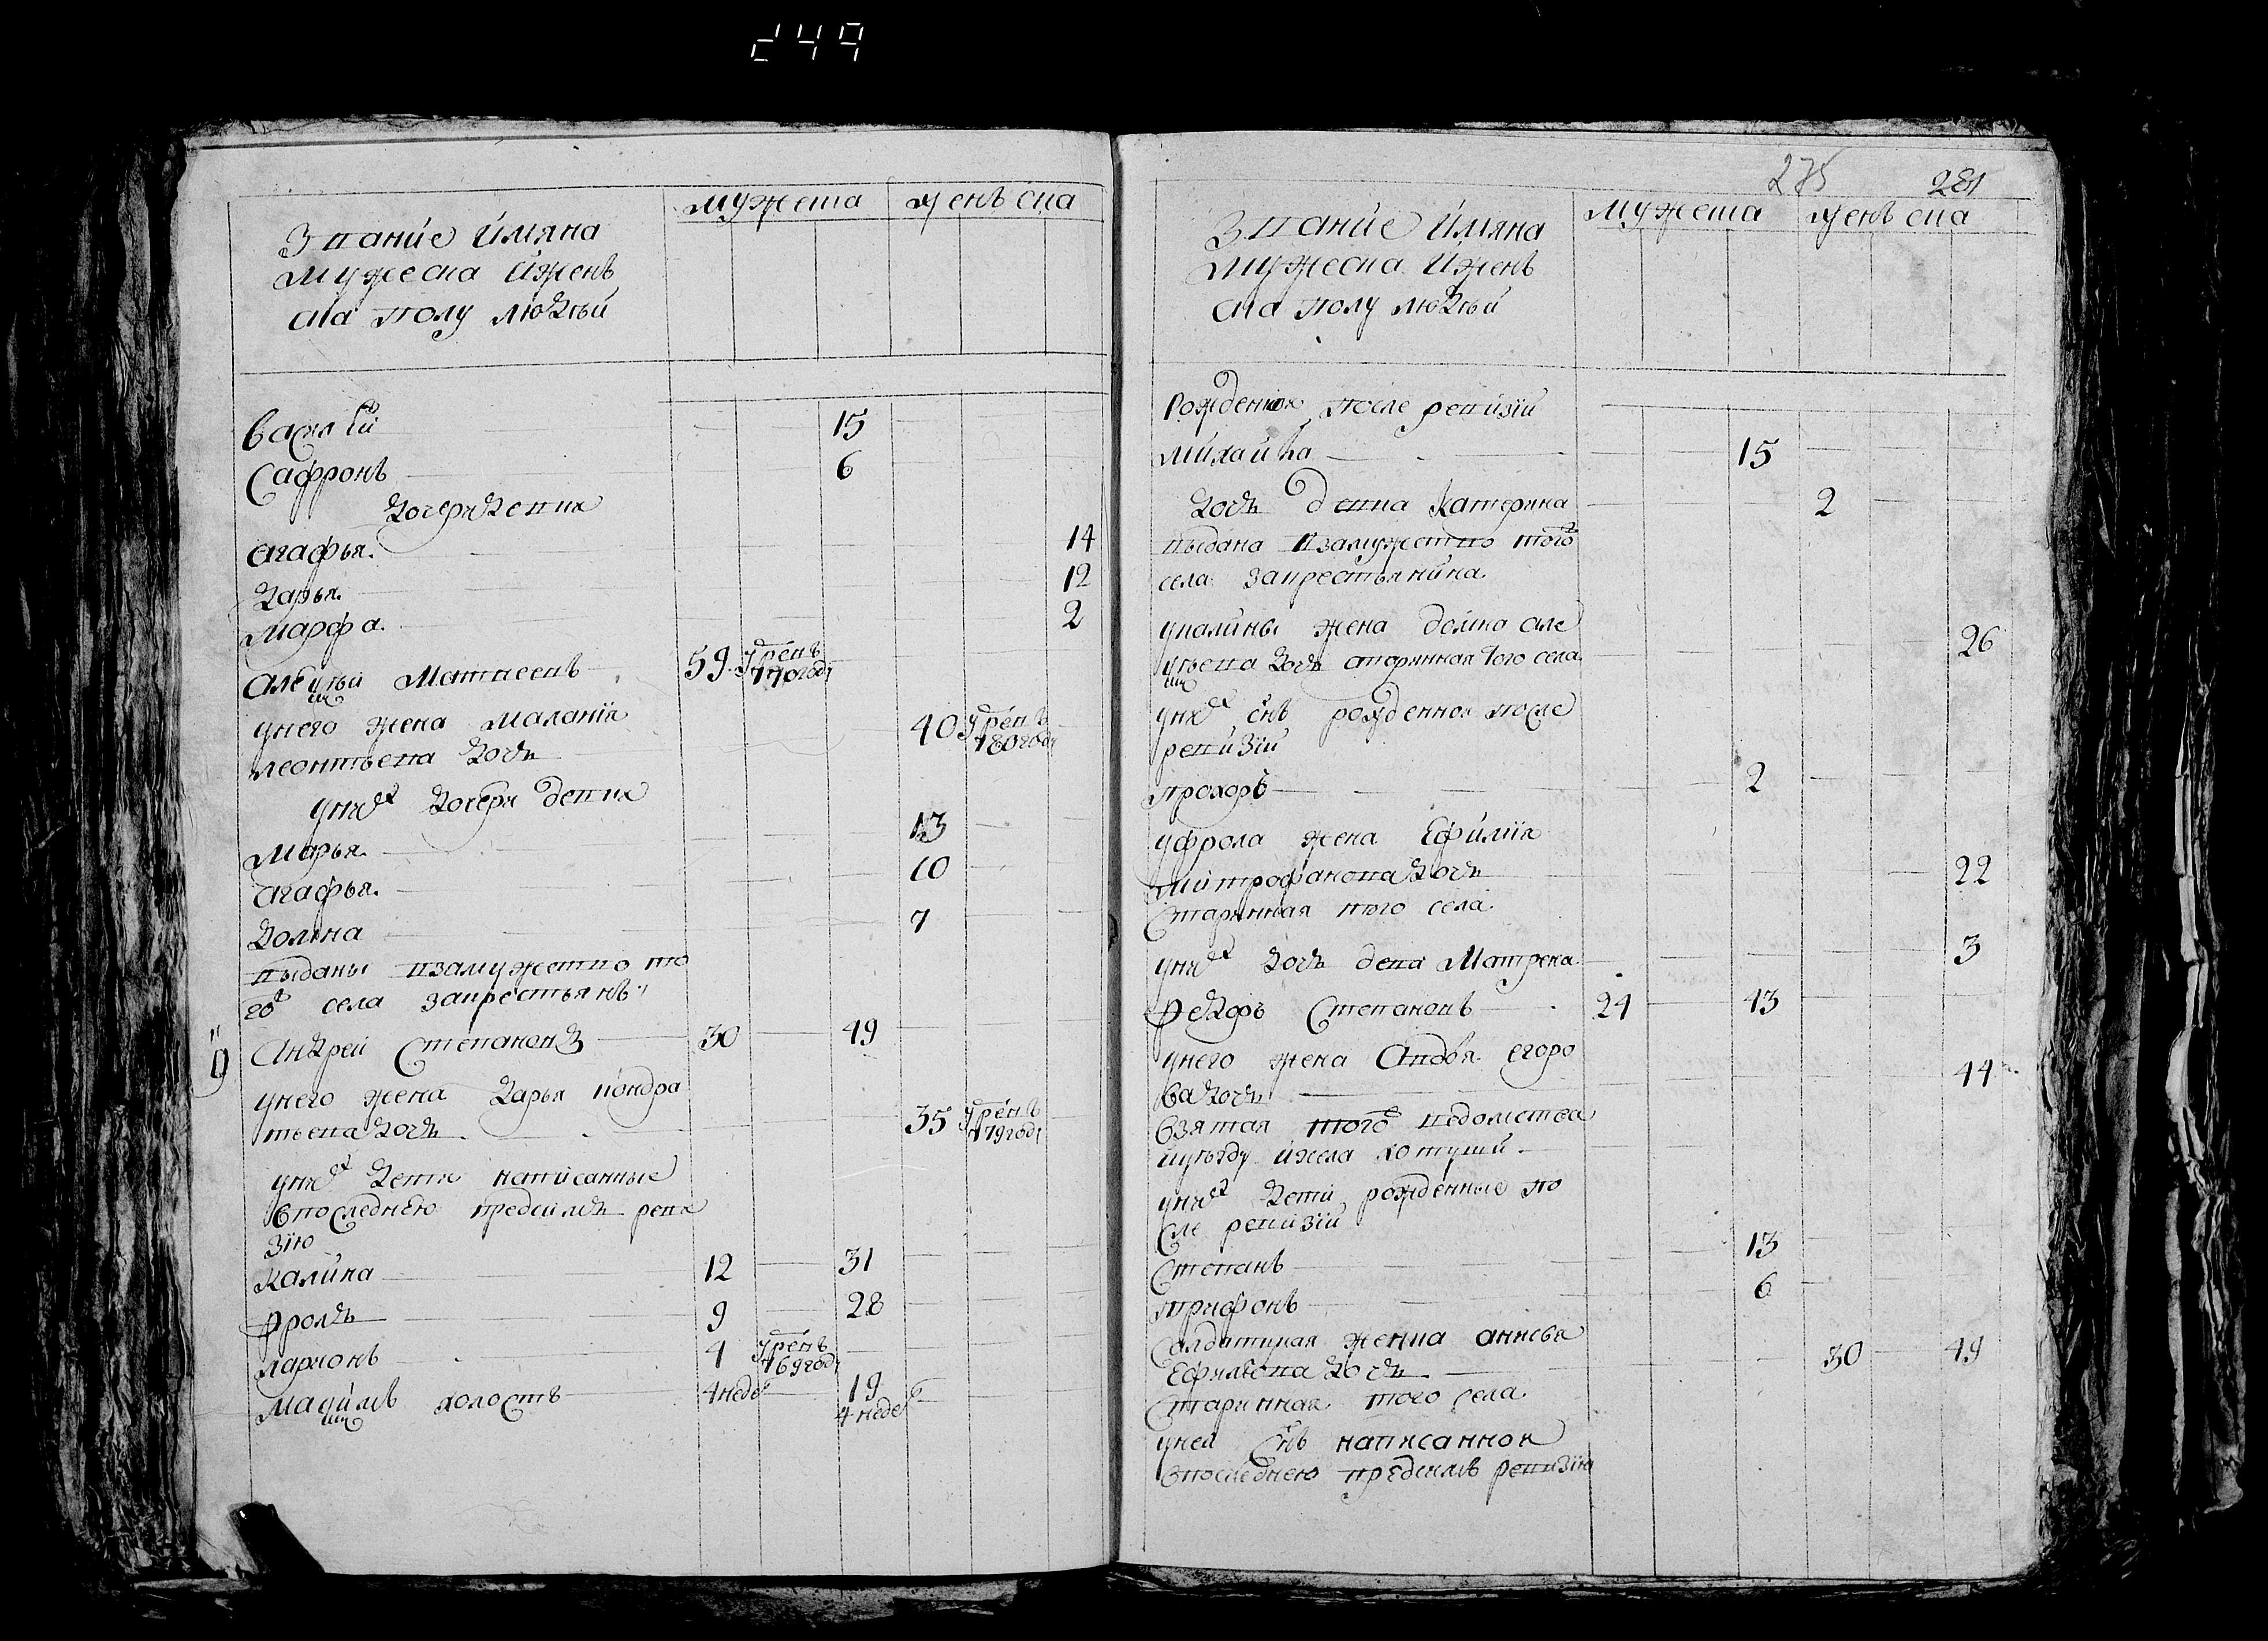 249
Звание имяна
мужеска иженъ
ска полу людѣй
мужеска
женъ ска
Василѣй 15
Сафронъ 6
дочеридевки
агафья 14
дарья 12
марфа 2
алексѣй Матвеевъ 59 умрé въ 770году
унего жена маланiя 40 умрé въ 780году
леонтьева дочь
уних дочери девки
Марья 13
агафья 10
домна 7
выданы взамужество то
го села закрестьянъ
9 Андрей Степановъ 30 49
унего жена дарья кондра
тьева дочь 35 умрé въ 779году
уних дети написанные
впоследнею предсимъ реви
зiю
калина 12 31
фролъ 9 28
ларионъ 4 умрé въ 769году
Максимъ холостъ 4неде 19
4 неде
275 281
Звание имяна
мужеска ижень
ска полу людѣй
мужеска
женъ ска
Рожденнои после ревизiи
михайла 15
дочь девка катерина 2
выдана взамужество того
села закрестьянина
укалины жена домна але 26
ксѣева дочь старинная того села
уних снъ рожденнои после
ревизiи
прохоръ 2
уфрола жена Ефимiя
митрофанова дочь 22
Старинная того села
уних дочь девка Матрена 3
федоръ Степановъ 24 43
унего жена Авдотья егоро
ва дочь 44
взятая того ведомства
иуѣзду исела
уних дети рожденные по
сле ревизiи
Степанъ 13
трифонъ 6
Солдатцкая женка анисья
Ефимова дочь 30 49
старинная того села
унеи снъ написаннои
впоследнею предсимъ ревизiю